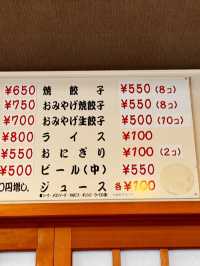 ¥650 焼餃子 ¥550 (8コ)
¥750 おみやげ焼餃子 ¥550 (8コ)
¥700 おみやげ生餃子 ¥500 (10コ)
¥800 ライス ¥100
¥550 おにぎり ¥100 (2コ)
¥500 ビール(中) ¥550
0円増し。 ジュース 各¥100